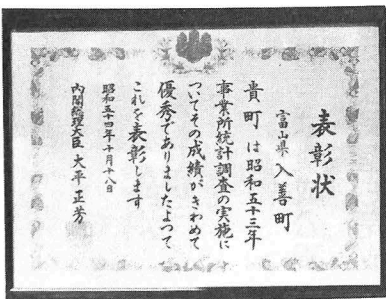 表彰状
富山県 入善町
貴町 は昭和五十三年
事業所統計調査の実施に
ついてその成績がきわめて
優秀でありましたよつて
これを表彰します
昭和五十四年十月十八日
内閣総理大臣 大平正芳